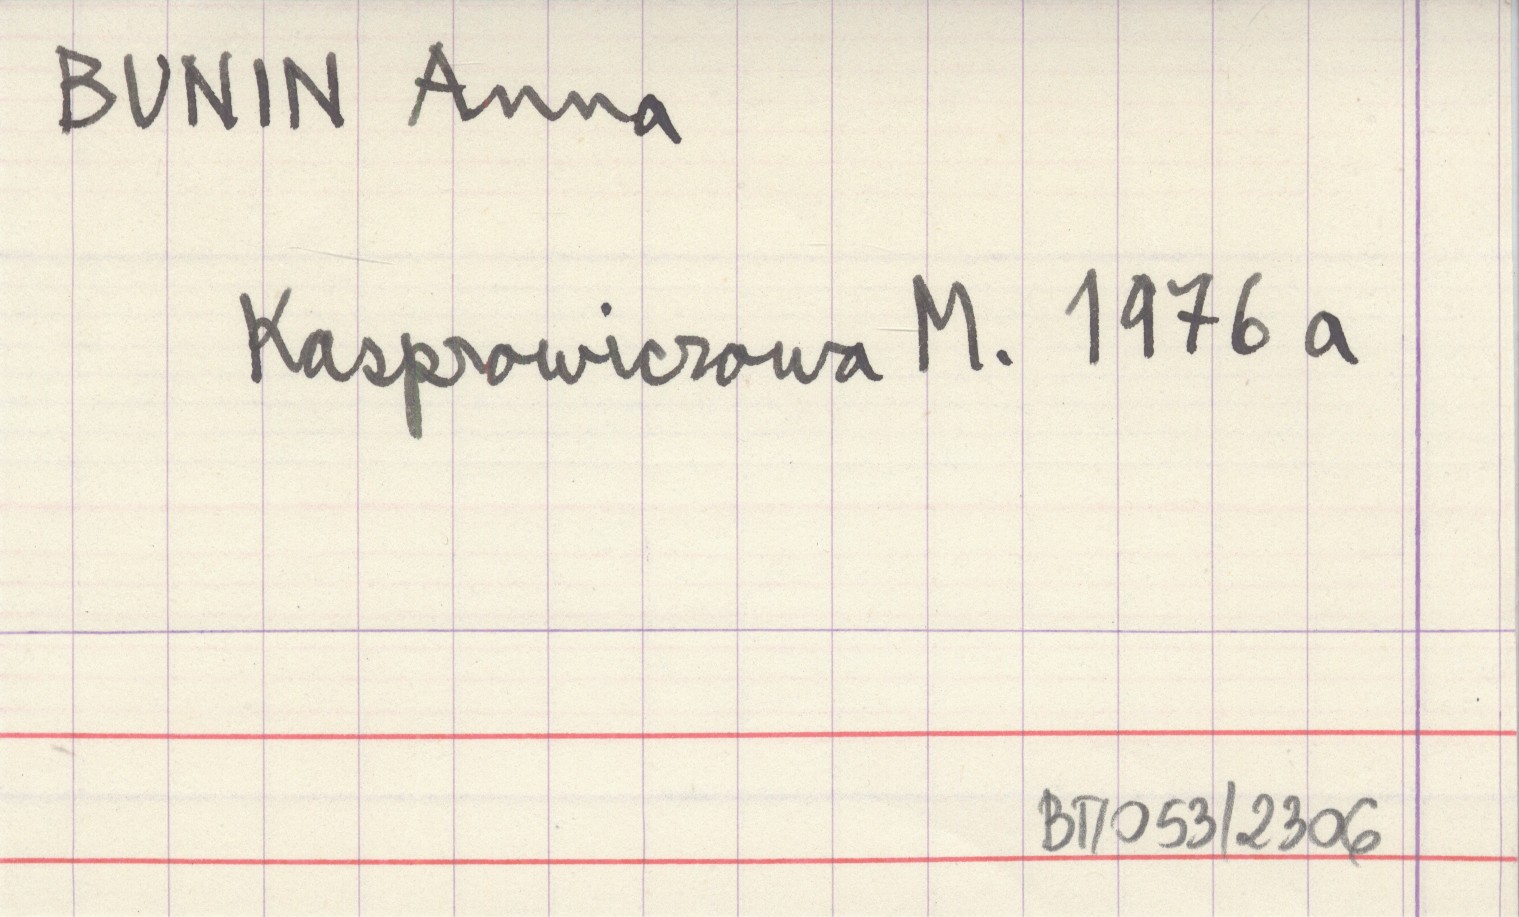 BUNIN Anna
Kasprowiczowa M. 1976 a
ВП053/2306